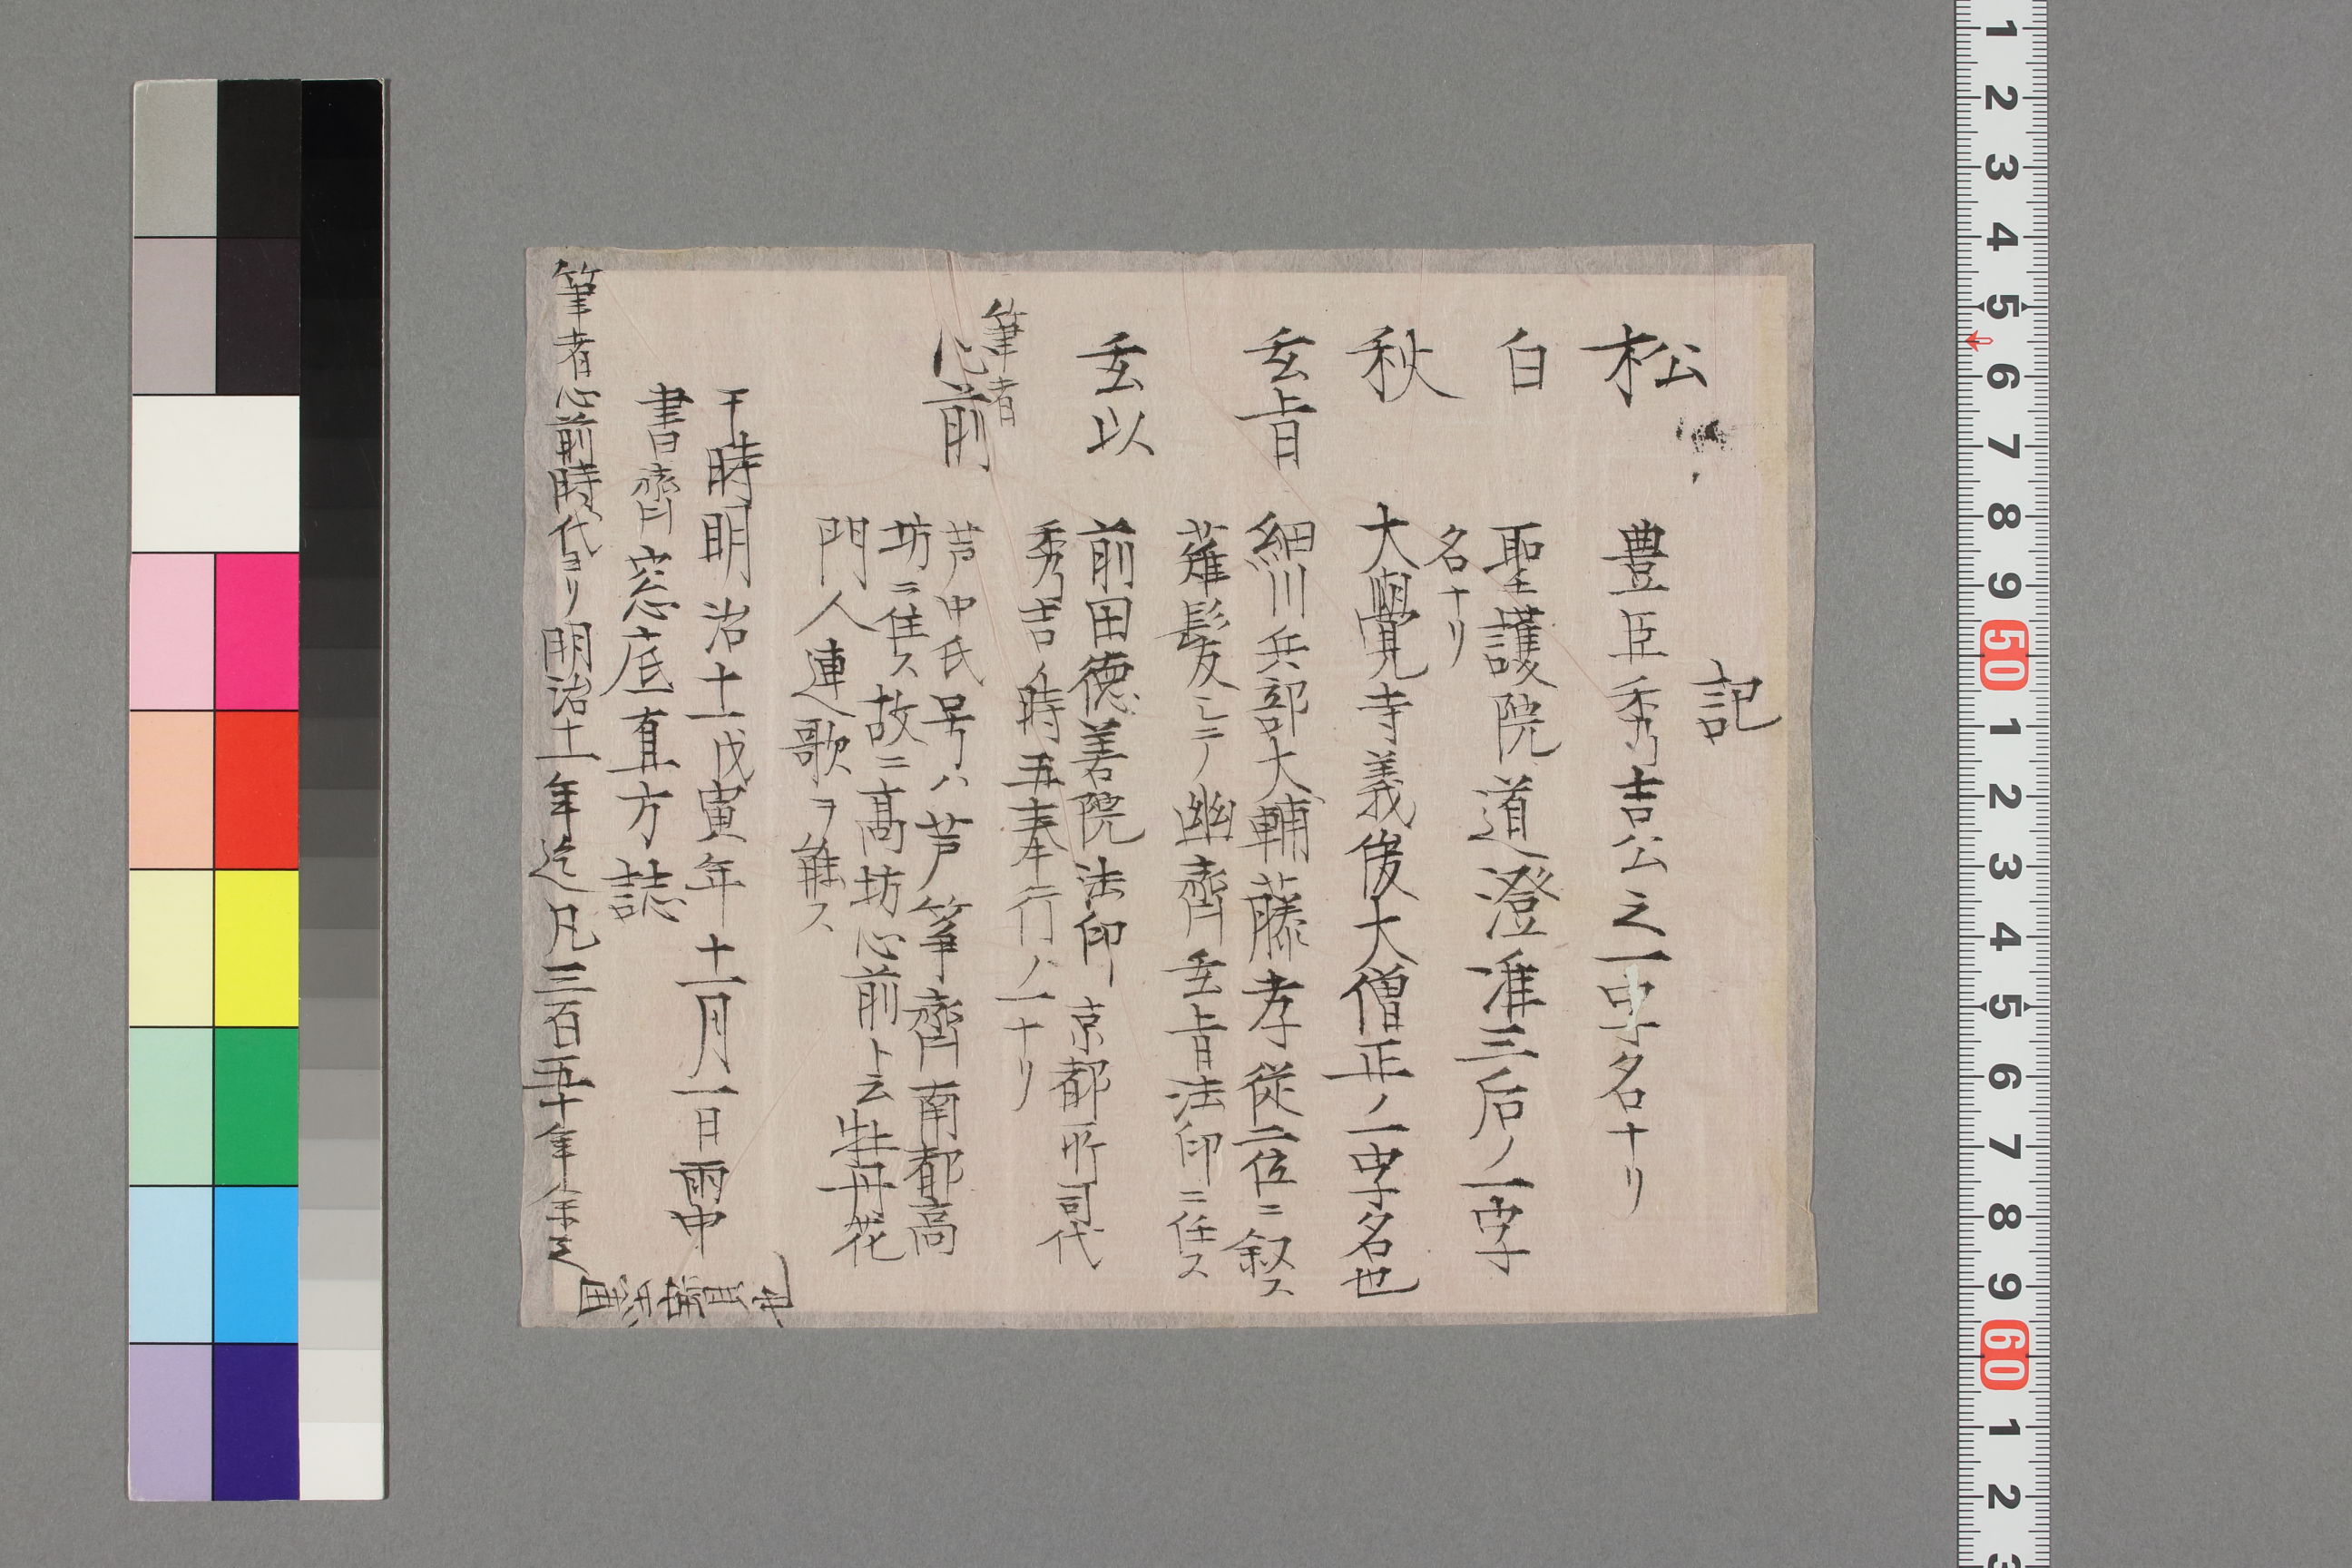 記
松 豊臣秀吉公之一字名ナリ
白 聖護院道澄准三后ノ一字
名ナリ
秋 大覺寺義俊大僧正ノ一字名也
玄旨 細川兵部大輔藤孝従二位ニ叙ス
薙髪シテ幽齊玄旨法印ニ任ス
玄以 前田徳善院法印 京都所司代
秀吉ノ時五奉行ノ一ナリ
筆者
心前 芦中氏号ハ芦筆齊南都高
坊ニ隹ス故ニ高坊心前ト云牡丹花
門人連歌ヲ能ス
干時明治十一戊寅年十一月一日雨中
書齊窓底直方誌
筆者心前時代ヨリ明治十一年迄凡三百五十年年之
也
1 2 3 4 5 6 7 8 9 50 1 2 3 4 5 6 7 8 9 60 1 2 3